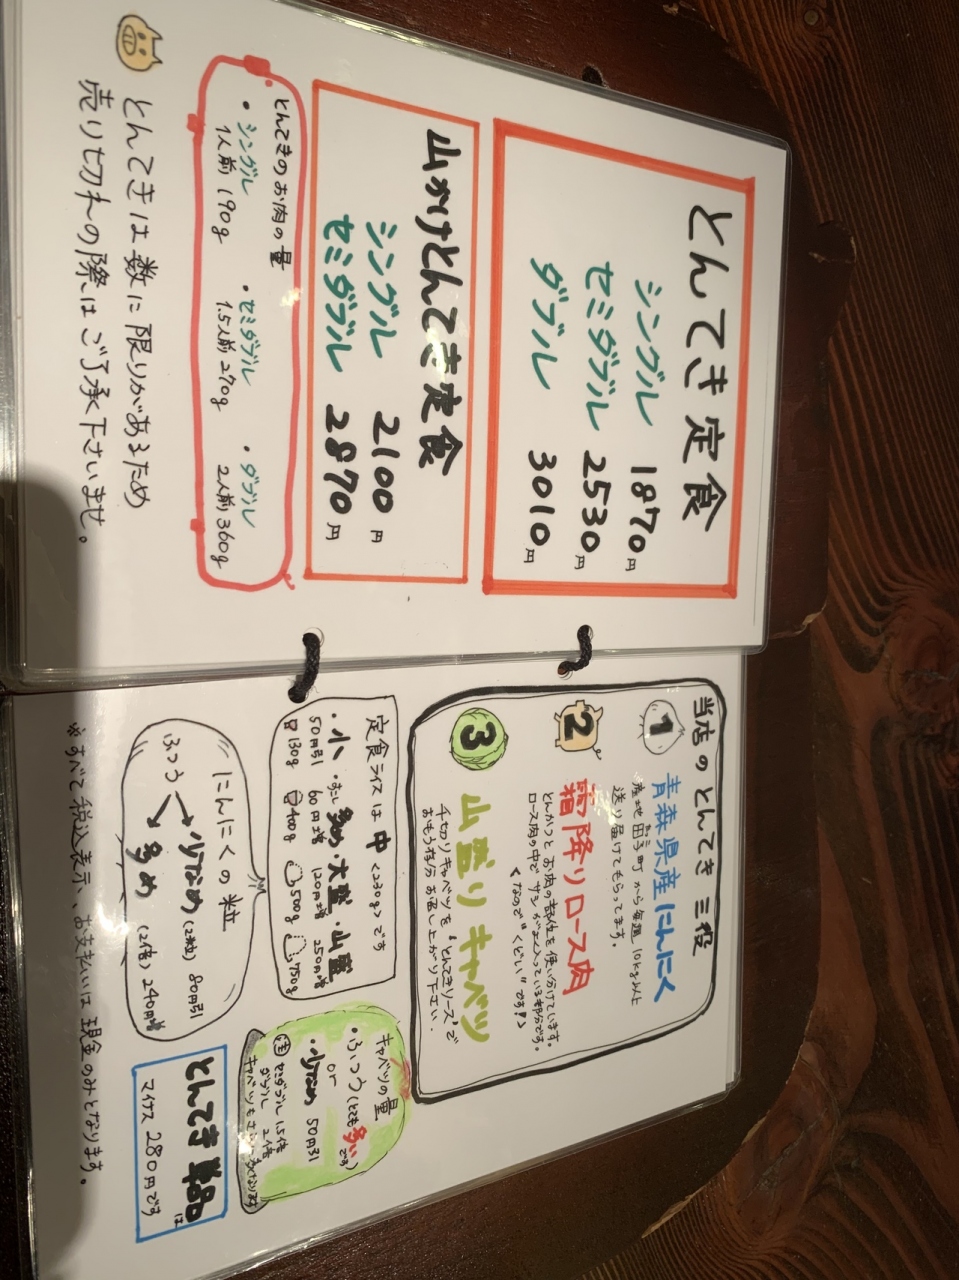 とんてき定食
シングル 1870円
セミダブル 2530円
ダブル 3010円
山かけとんてき定食
シングル 2100円
セミダブル 2870円
とんてきのお肉の量
・シングル ・セミダブル ・ダブル
1人前 190g 1.5人前 270g 2人前 360g
とんてきは数に限りがあるため
売り切れの際はご了承下さいませ。
当店のとんてき三役
1 青森県産にんにく
産地 田子町から毎週10kg以上
送り届けてもらってます。
2 霜降りロース肉
とんかつとお肉の部位を使い分けています。
ロース肉の中でサシがよく入っている部分です。
<なので"くどい"です!>
3 山盛りキャベツ
千切りキャベツを"とんてきソース"で
おもう存分お召し上がり下さい。
定食ライスは中<230g>です
・小 ・すこし多め 大盛 ・山盛
50円引 60円増 120円増 250円増
130g 400g 500g 750g
にんにくの粒
ふつう
少なめ(2粒) 80円引
多め (2倍) 240円増
キャベツの量
・ふつう(とても多いです)
or
・少なめ 50円引
注 セミダブル 1.5倍
ダブル 2倍
とんてき単品は
マイナス 280円です
※すべて税込表示、お支払いは現金のみとなります。